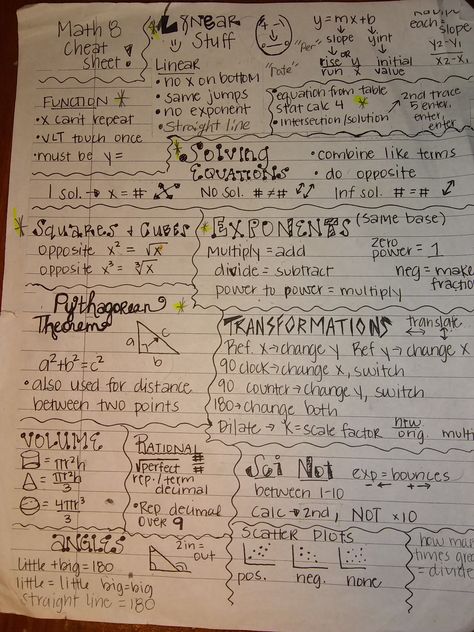 Math 8
Cheat
Sheet!
Linear
Stuff
Linear
• no x on bottom
• same jumps
• no exponent
• Straight line
"Per"
"Rate"
y=mx+b
slope
yint
or
rise y
run x
initial
value
each=
slope
y₂-y₁
x₂-x₁
• equation from table
stat calc 4
• intersection/solution
2nd trace
5 enter,
enter,
enter
FUNCTION
• x can't repeat
• VLT touch once
• must be y=
Solving
Equations
• combine like terms
• do opposite
1 sol. → x = #
No sol. # ≠ #
Inf sol. # = #
Squares & Cubes
opposite x² = √x
opposite x³ = ∛x
EXPONENTS (same base)
multiply = add
divide = subtract
power to power = multiply
zero
power = 1
neg = make
fractio
Pythagorean
Theorem
a
b
c
a²+b²=c²
• also used for distance
between two points
TRANSFORMATIONS
translate
Ref x→change y Ref y→change x
90 clock→change x, switch
90 counter→change y, switch
180→change both
Dilate → K=scale factor new
orig. mult
VOLUME
= πr²h
= πr²h
3
= 4πr³
3
RATIONAL
√perfect #
#
rep./term
decimal
• Rep decimal
over 9
Sci Not
exp=bounces
- +
between 1-10
Calc → 2nd, NOT x10
ANGLES
little + big = 180
little = little big=big
straight line = 180
2 in =
out
Scatter Plots
pos.
neg.
none
how man
times grea
= divide